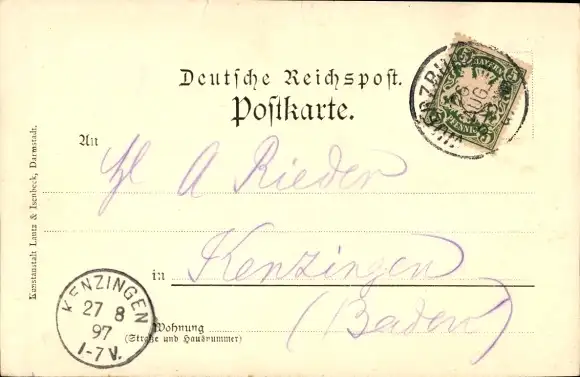 Deutsche Reichspost.
Postkarte.
An
A Rieder
in Kenzingen
(Baden)
Wohnung
(Straße und Hausnummer)
Kunstanstalt Lautz & Isenbeck, Darmstadt.
KENZINGEN
27 8
97
1-7 V.
5 BAYERN 5
PFENNIG
26
AUG